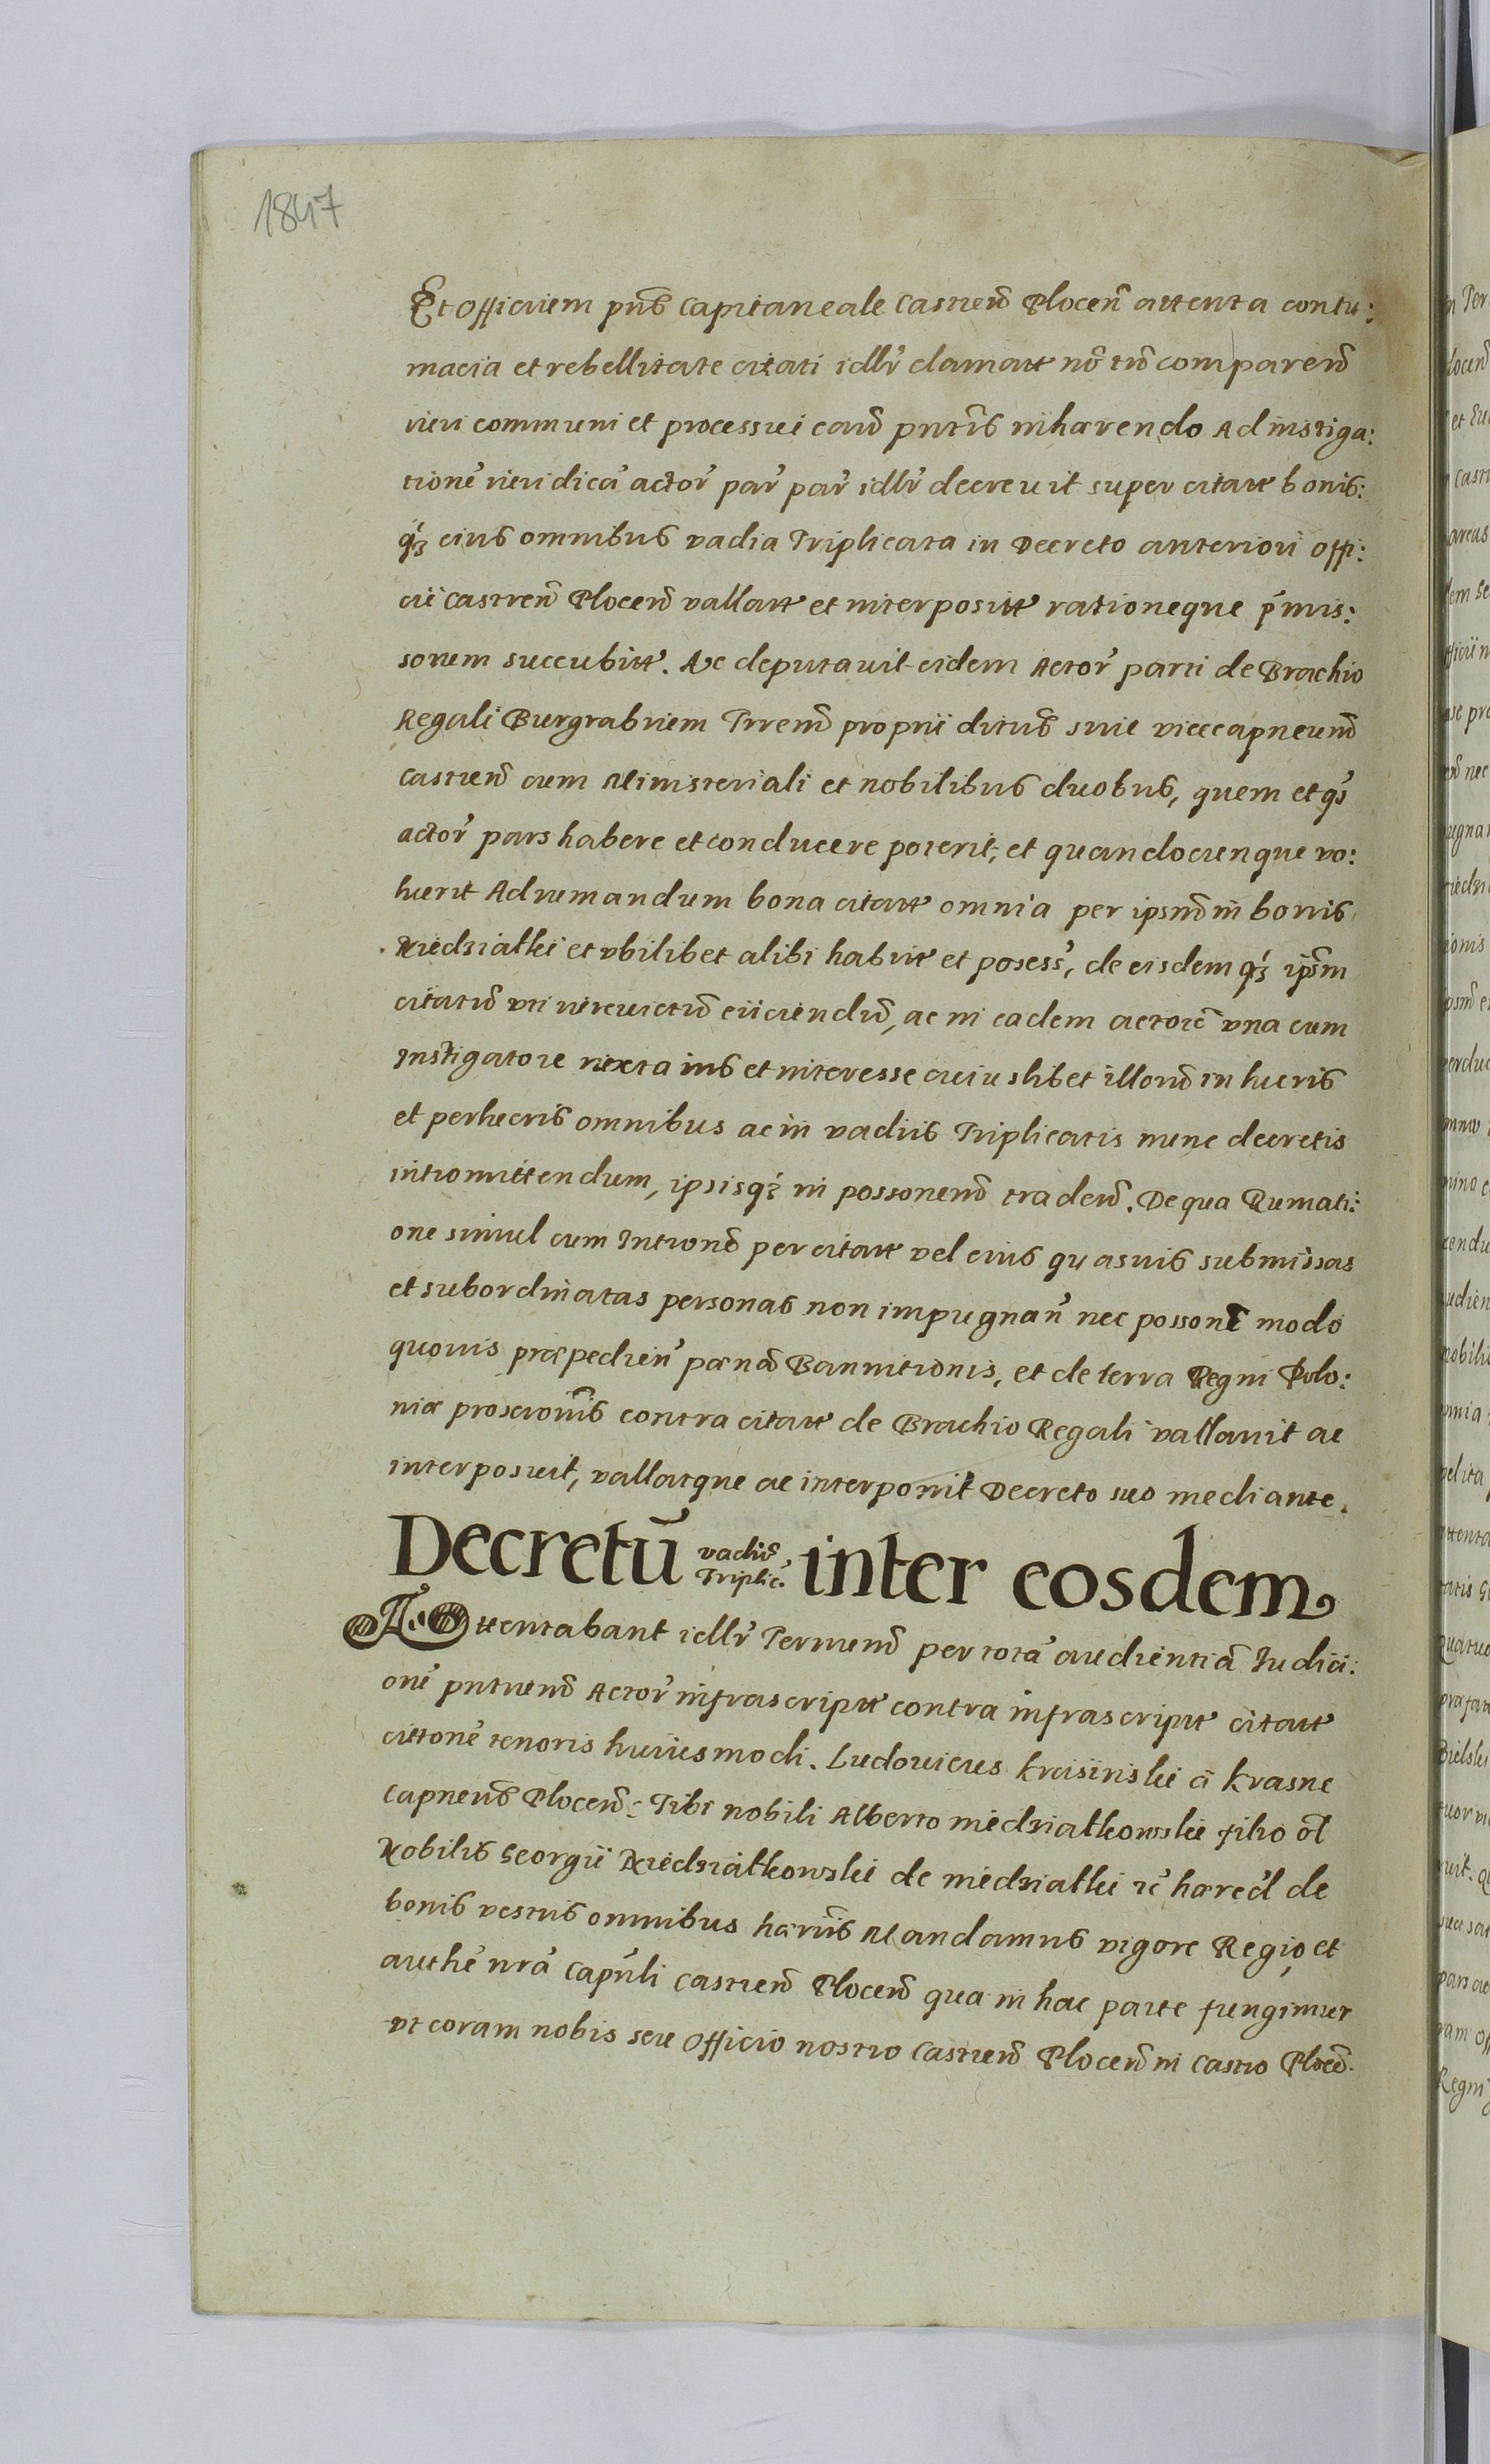 1847
Et Officium pñs Capitaneale Castreñ Ploceñ attenta contu:
macia et rebellitate citati idłr clamatt nõ tñ compareñ
iuri communi et processui eaũ pñtis inhærendo Ad instiga:
tionẽ iuridicã actor' par' par' idłr decreuit super citatt bonis:
q́ʒ eius omnibus vadia Triplicata in Decreto anteriori offi:
cii Castreñ Ploceñ vallatt et interpositt rationeque ṕmis:
sorum succubitt. Ac deputauit eidem Actor' parti de Brachio
Regali Burgrabium Trreñ proprii ditũs siue vicecapneum̃
Castreñ cum Ministeriali et nobilibus duobus, quem et q́s
actor' pars habere et conducere poterit, et quandocunque vo:
luerit Ad rumandum bona citatt omnia per ipsum̃ in bonis
Niedzialki et vbilibet alibi habitt et posess', de eisdem q́ʒ ipsm̃
citatũ vti iureuictũ eiiciendũ, ac in eadem actorẽ vna cum
Instigatore iuxta ius et interesse cuiuslibet illorũ in lucris
et perlucris omnibus ac in vadiis Triplicatis nunc decretis
intromittendum, ipsisq́ʒ in possonem̃ tradeñ. De qua Rumati:
one simul cum Intronẽ per citatt vel eius quasuis submissas
et subordinatas personas non impugnan' nec possonẽ modo
quouis præpedien' pœnã Bannitionis, et de terra Regni Polo:
niæ proscrip̃onis contra citatt de Brachio Regali vallauit ac
interposuit, vallatque ac interponit Decreto suo mediante.
Decretũ vadiũ Triplic: inter eosdem
Attentabant idłr Terminũ per totã audientiã Iudici:
onẽ pñtiuem̃ Actor' infrascriptt contra infrascriptt citatt
cittonẽ tenoris huiusmodi. Ludouicus Krasinski à Krasne
Capneus̃ Ploceñ: Tibi nobili Alberto Niedzialkowski filio oł
Nobilis Georgii Niedzialkowski de Niedzialki ic' hæred' de
bonis vestris omnibus hæriis̃ Mandamus vigore Regio, et
authẽ nrã Capñli Castreñ Ploceñ qua in hac parte fungimur
vt coram nobis seu Officio nostro Castreñ Ploceñ in Castro Ploceñ.